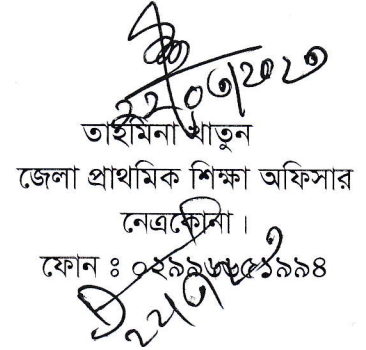 তাহমিনা খাতুন
জেলা প্রাথমিক শিক্ষা অফিসার
নেত্রকোনা।
ফোন ঃ ০২৯৯৬৬৫১৯৯৪